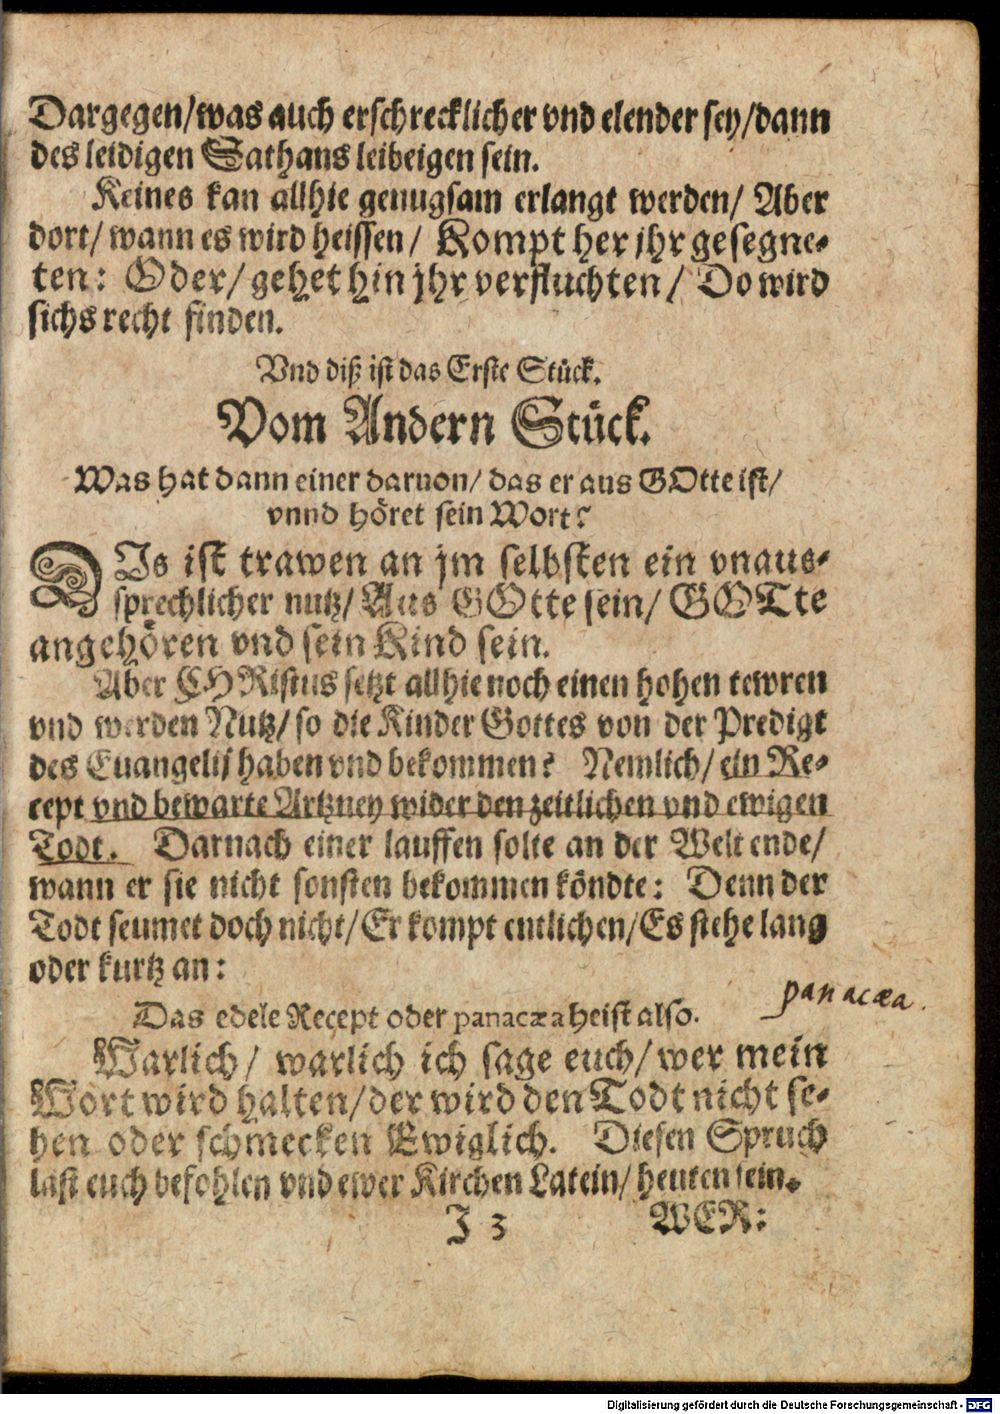 Dargegen/was auch erschrecklicher vnd elender sey/dann
des leidigen Sathans leibeigen sein.
Keines kan allhie genugsam erlangt werden/ Aber
dort/ wann es wird heissen/ Kompt her jhr gesegne-
ten: Oder/ gehet hin jhr verfluchten/ Do wird
sichs recht finden.
Vnd diß ist das Erste Stück.
Vom Andern Stück.
Was hat dann einer daruon/ das er aus GOtte ist/
vnnd höret sein Wort?
DIs ist trawen an jm selbsten ein vnaus-
sprechlicher nutz/ Aus GOtte sein/ GOTte
angehören vnd sein Kind sein.
Aber CHRistus setzt allhie noch einen hohen tewren
vnd werden Nutz/ so die Kinder Gottes von der Predigt
des Euangelij haben vnd bekommen? Nemlich/ ein Re-
cept vnd bewarte Artzney wider den zeitlichen vnd ewigen
Todt. Darnach einer lauffen solte an der Welt ende/
wann er sie nicht sonsten bekommen köndte: Denn der
Todt seumet doch nicht/ Er kompt entlichen/ Es stehe lang
oder kurtz an:
panacæa.
Das edele Recept oder panacæa heist also.
Warlich/ warlich ich sage euch/ wer mein
Wort wird halten/ der wird den Todt nicht se-
hen oder schmecken Ewiglich. Diesen Spruch
last euch befohlen vnd ewer Kirchen Latein/ heuten sein.
J 3 WER:
Digitalisierung gefördert durch die Deutsche Forschungsgemeinschaft - DFG